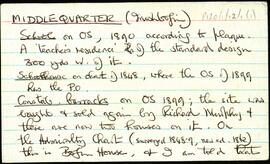 MIDDLEQUARTER (Inishbofin)
School on OS, 1890 according to plaque.
A 'teacher's residence' of the standard design
300 yds W. of it.
Schoolhouse on chart of 1848, where the OS of 1899
has the P.O.
Constab. barracks on OS 1899; the site was
bought & sold again by Richard Murphy &
there are now two houses on it. On
the Admiralty Chart (surveyed 1848-9,
this is House, of I am told